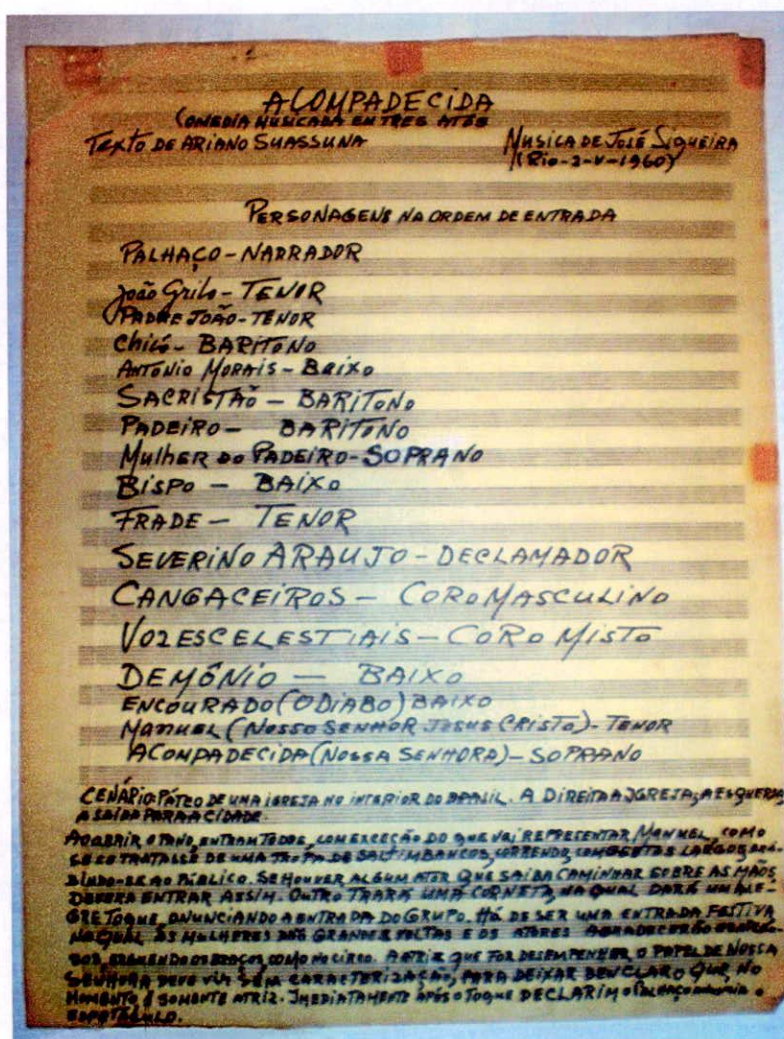 A COMPADECIDA
COMEDIA MUSICADA EM TRES ATOS
TEXTO DE ARIANO SUASSUNA
MUSICA DE JOSÉ SIQUEIRA
(Rio-2-V-1960)
PERSONAGENS NA ORDEM DE ENTRADA
PALHAÇO - NARRADOR
João Grilo - TENOR
PADRE JOÃO - TENOR
Chicó - BARITONO
ANTÔNIO MORAIS - BAIXO
SACRISTÃO - BARITONO
PADEIRO - BARITONO
Mulher do PADEIRO - SOPRANO
BISPO - BAIXO
FRADE - TENOR
SEVERINO ARAUJO - DECLAMADOR
CANGACEIROS - CORO MASCULINO
VOZES CELESTIAIS - CORO MISTO
DEMÔNIO - BAIXO
ENCOURADO (O DIABO) BAIXO
MANUEL (NOSSO SENHOR JESUS CRISTO) - TENOR
A COMPADECIDA (NOSSA SENHORA) - SOPRANO
CENÁRIO: PÁTEO DE UMA IGREJA NO INTERIOR DO BRASIL. A DIREITA A IGREJA; A ESQUERDA
A SAÍDA PARA A CIDADE.
AO ABRIR O PANO, ENTRAM TODOS, COM EXCEÇÃO DO QUE VAI REPRESENTAR MANUEL, COMO
SE SE TRATASSE DE UMA TROPA DE SALTIMBANCOS, CORRENDO, COM GESTOS LARGOS, EXI-
BINDO-SE AO PÚBLICO. SE HOUVER ALGUM ATOR QUE SAIBA CAMINHAR SOBRE AS MÃOS
DEVERA ENTRAR ASSIM. OUTRO TRARÁ UMA CORNETA, NA QUAL DARÁ UM ALE-
GRE TOQUE, ANUNCIANDO A ENTRADA DO GRUPO. HÁ DE SER UMA ENTRADA FESTIVA,
NA QUAL AS MULHERES DÃO GRANDES VOLTAS E OS ATORES AGRADECERÃO
ERGUENDO OS BRAÇOS COMO NO CIRCO. A ATRIZ QUE FOR DESEMPENHAR O PAPEL DE NOSSA
SENHORA DEVE VIR SEM CARACTERIZAÇÃO, PARA DEIXAR BEM CLARO QUE, NO
MOMENTO É SOMENTE ATRIZ. IMEDIATAMENTE APÓS O TOQUE DE CLARIM O PALHAÇO ANUNCIA O
ESPETÁCULO.